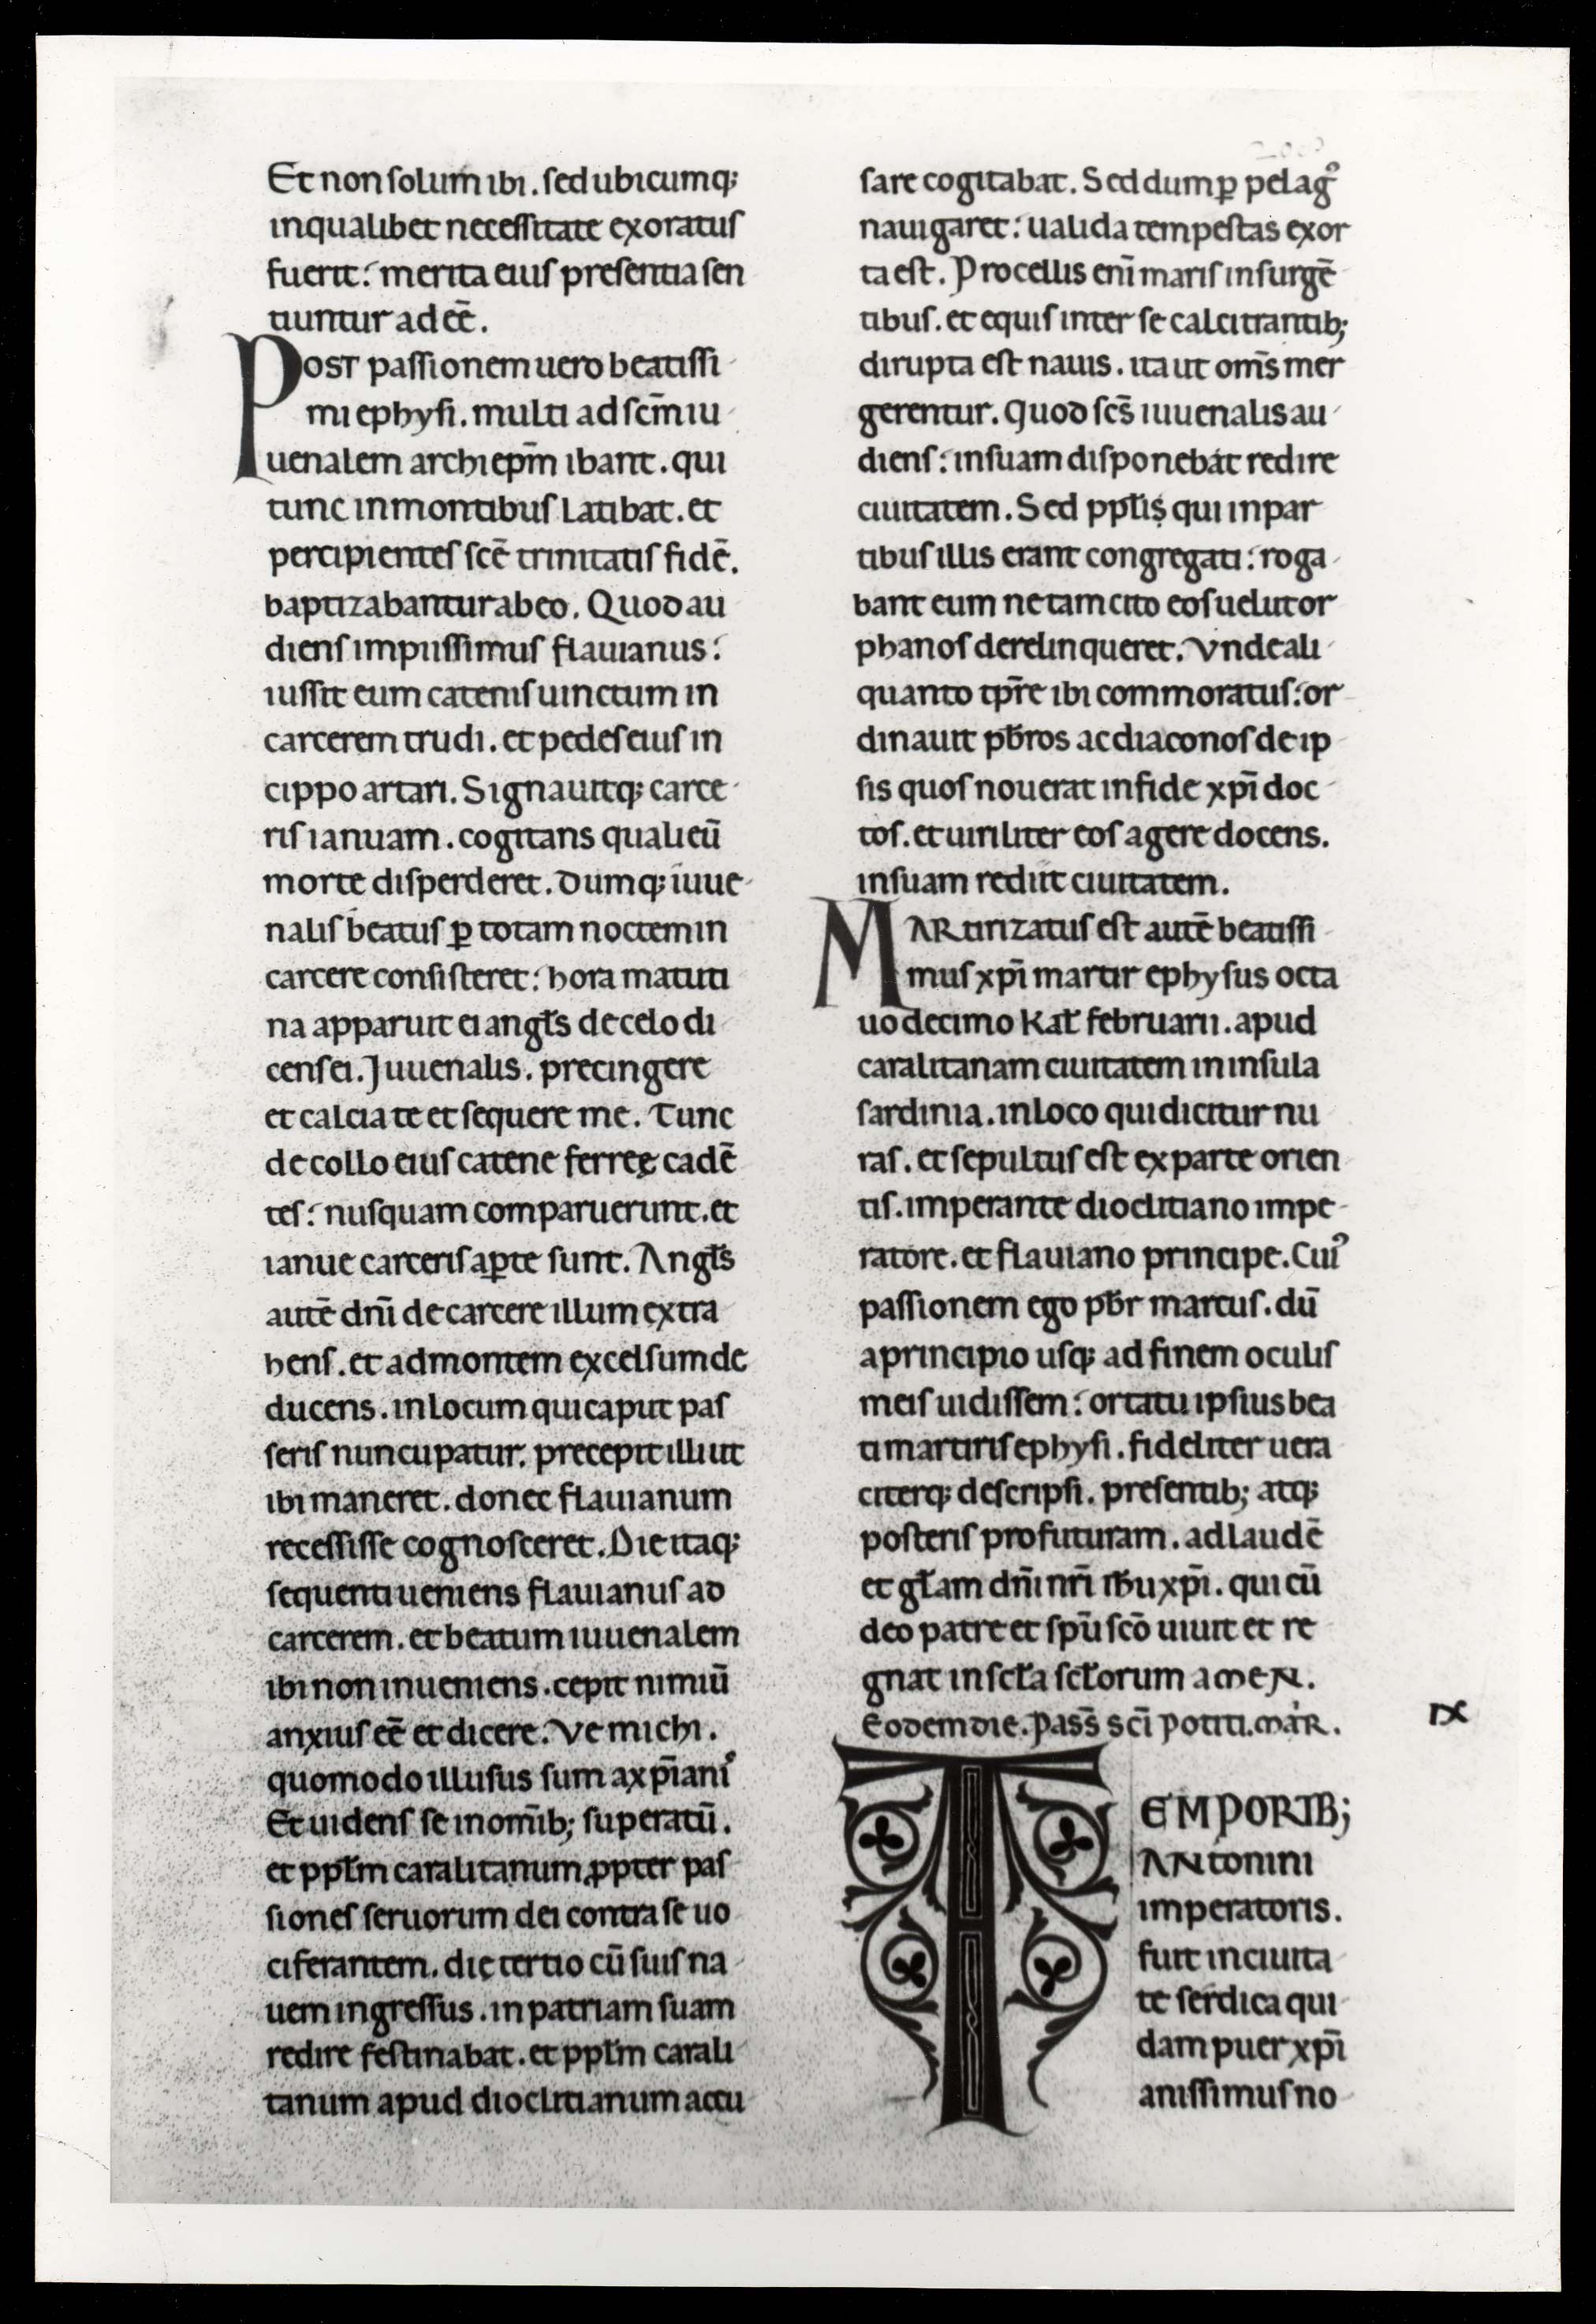 Et non solum ibi. sed ubicumq;
inqualibet necessitate exoratus
fuerit: merita eius presentia sen
tiuntur adeē.
Post passionem uero beatissi
mi ephysi. multi ad scm̄ iu
uenalem archiepm̄ ibant. qui
tunc inmontibus latibat. et
percipientes scē trinitatis fidē.
baptizabantur abeo. Quod au
diens impiissimus flauianus:
iussit eum catenis uinctum in
carcerem trudi. et pedes eius in
cippo artari. Signauitq; carce
ris ianuam. cogitans quali eū
morte disperderet. Dumq; iuue
nalis beatus ꝑ totam noctem in
carcere consisteret: hora matuti
na apparuit ei angl̄s decelo di
cens ei. Juuenalis. precingere
et calcia te et sequere me. Tunc
decollo eius catene ferreę cadē
tes: nusquam comparuerunt. et
ianue carceris aꝑte sunt. Angl̄s
autē dn̄i decarcere illum extra
hens. et admontem excelsum de
ducens. inlocum qui caput pas
seris nuncupatur. precepit illi ut
ibi maneret. donec flauianum
recessisse cognosceret. Die itaq;
sequenti ueniens flauianus ad
carcerem. et beatum iuuenalem
ibi non inueniens. cepit nimiū
anxius eē et dicere. Ve michi.
quomodo illusus sum axp̄ianis
Et uidens se inomīb; superatū.
et ppl̄m caralitanum ꝓpter pas
siones seruorum dei contra se uo
ciferantem. die tertio cū suis na
uem ingressus. inpatriam suam
redire festinabat. et ppl̄m carali
tanum apud dioclitianum accu
sare cogitabat. Sed dum ꝑ pelagꝰ
nauigaret: ualida tempestas exor
ta est. Procellis enī maris insurgē
tibus. et equis inter se calcitrantib;
dirupta est nauis. ita ut oms̄ mer
gerentur. Quod scs̄ iuuenalis au
diens: insuam disponebat redire
ciuitatem. Sed ppl̄is qui inpar
tibus illis erant congregati: roga
bant eum ne tam cito eos uelut or
phanos derelinqueret. Vnde ali
quanto tp̄re ibi commoratus: or
dinauit pb̄ros ac diaconos de ip
sis quos nouerat infide xp̄i doc
tos. et uiriliter eos agere docens.
insuam rediit ciuitatem.
MARtirizatus est autē beatissi
mus xp̄i martir ephysus octa
uodecimo kal̄ februarii. apud
caralitanam ciuitatem in insula
sardinia. inloco qui dicitur nu
ras. et sepultus est ex parte orien
tis. imperante dioclitiano impe
ratore. et flauiano principe. Cuiꝰ
passionem ego pb̄r marcus. dū
aprincipio usq; ad finem oculis
meis uidissem: ortatu ipsius bea
ti martiris ephysi. fideliter uera
citerq; descripsi. presentib; atq;
posteris profuturam. adlaudē
et gl̄am dn̄i nr̄i ih̄u xp̄i. qui cū
deo patre et sp̄u scō uiuit et re
gnat in scl̄a scl̄orum amen.
Eodem die. pass̄ sc̄i potiti. maR.
IX
TEMPORIB;
ANtonini
imperatoris.
fuit inciuita
te serdica qui
dam puer xp̄i
anissimus no